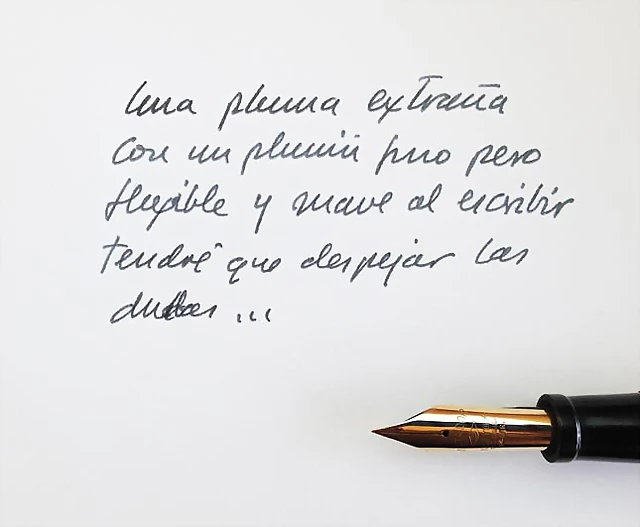 Una pluma extraña
Con un plumín fino pero
flexible y suave al escribir
tendré que despejar las
dudas ...